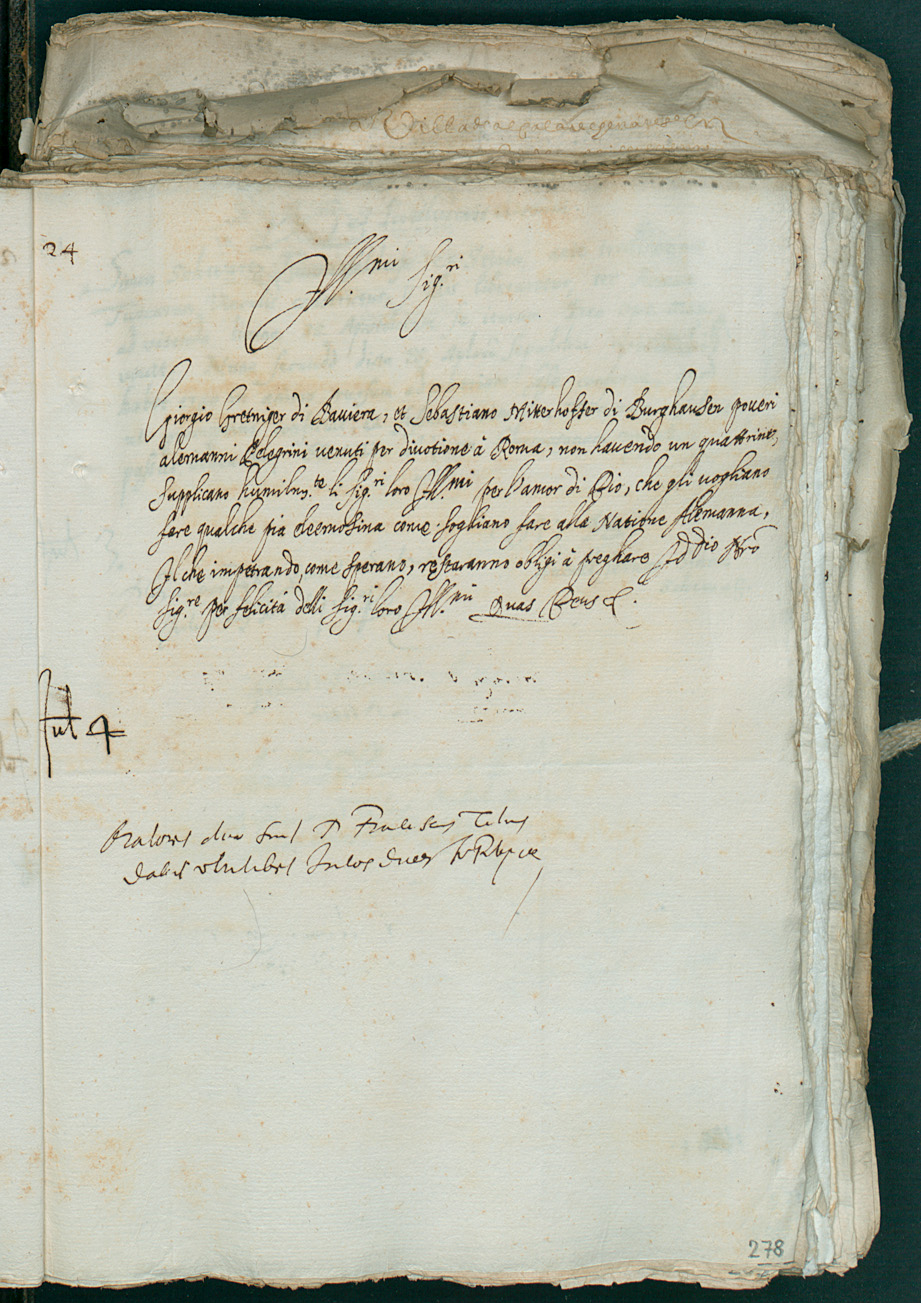 24
Ill.mi Sig.ri
Giorgio Gretniger di Baviera, et Sebastiano Mitterhoffer di Burghausen poveri
alemanni Pelegrini venuti per divotione à Roma, non havendo un quattrino,
supplicano humilm.te li Sig.ri loro Ill.mi per l'amor di Dio, che gli vogliano
fare qualche pia elemosina come sogliano fare alla Natione Alemanna,
Il che impetrando, come sperano, restaranno obligi à preghare Iddio Nrõ
Sig.re per felicità delli Sig.ri loro Ill.mi Quas Deus
Jul 4
Oratores duo sunt D
dabit Julios duos
278